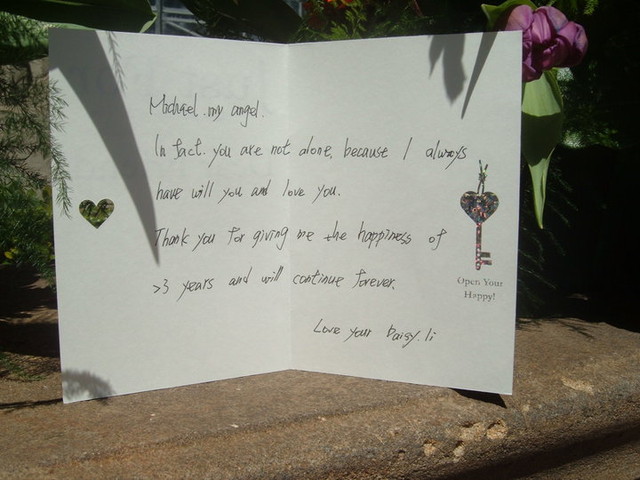 Michael. my angel.
In fact. you are not alone, because I always
have will you and love you.
Thank you for giving me the happiness of
>3 years and will continue forever.
Love your Daisy. li
Open Your
Happy!